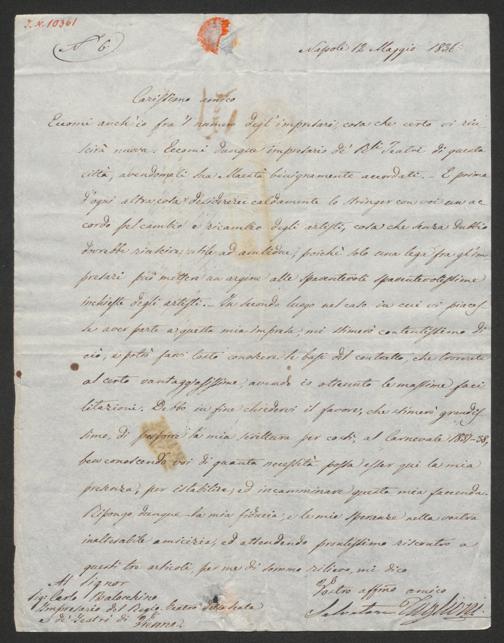 I.N. 10361
N° 6
Napoli 12 Maggio 1836
Carissimo amico
Eccomi anch'io fra 'l numero degl'impresari, cosa che certo vi riu-
scirà nuova. Eccomi dunque impresario de' R.li Teatri di questa
città, avendomeli Sua Maestà benignamente accordati. - E prima
d'ogni altra cosa desidererei caldamente lo stringer con voi un ac-
cordo pel cambio e ricambio degli artisti, cosa che senza dubbio
dovrebbe riuscire utile ad ambedue, poichè solo una lega fra gl'im-
presari può metter un argine alle spaventevoli spaventevolissime
inchieste degli artisti. - In secondo luogo nel caso in cui vi piaces-
se aver parte a questa mia impresa, mi stimerò contentissimo di
ciò, e potrò farvi tosto conoscere le basi del contratto, che troverete
al certo vantaggiosissime, avendo io ottenute le massime faci
litazioni. Debbo in fine chiedervi il favore, che stimerò grandis-
simo, di la mia scrittura per costì, al Carnevale 1837-38,
ben conoscendo voi di quanta necessità possa esser qui la mia
presenza, per istabilire, ed incamminare questa mia faccenda.
Ripongo dunque la mia fiducia, e le mie speranze nella vostra
inalterabile amicizia, ed attendendo prontissimo riscontro a
questi tre articoli, per me di sommo rilievo, mi dico
Vostro affmo amico
Al Signor
Sig. Carlo Balocchino
Impresario del Regio Teatro della Scala
e de' Teatri di Vienna
Salvatore Taglioni